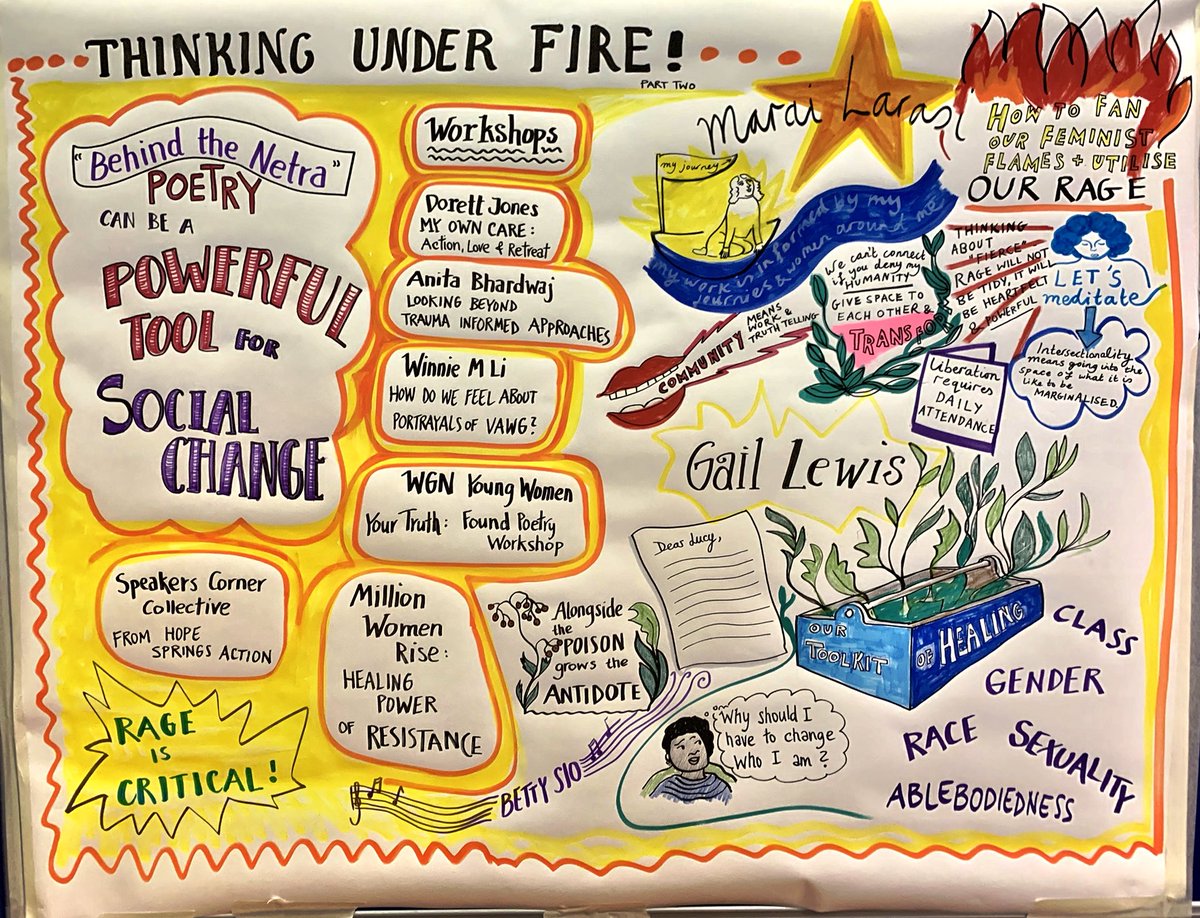 THINKING UNDER FIRE!
PART TWO
"Behind the Netra"
POETRY
CAN BE A
POWERFUL
TOOL FOR
SOCIAL
CHANGE
Speakers Corner
Collective
FROM HOPE
SPRINGS ACTION
RAGE
IS
CRITICAL!
Workshops
Dorett Jones
MY OWN CARE:
Action, Love & Retreat
Anita Bhardwaj
LOOKING BEYOND
TRAUMA INFORMED APPROACHES
Winnie M Li
HOW DO WE FEEL ABOUT
PORTRAYALS OF VAWG?
WGN Young Women
Your Truth: Found Poetry
Workshop
Million
Women
Rise:
HEALING
POWER
OF RESISTANCE
Alongside
the
POISON
grows the
ANTIDOTE
BETTY SIO
Marai Larasi
my journey
my work is informed by my
journies & women around me
HOW TO FAN
OUR FEMINIST
FLAMES + UTILISE
OUR RAGE
COMMUNITY
MEANS
WORK &
TRUTH TELLING
We can't connect
if you deny my
HUMANITY
GIVE SPACE TO
EACH OTHER &
THINKING
ABOUT
"FIERCE"
RAGE WILL NOT
BE TIDY, IT WILL
BE HEARTFELT
& POWERFUL
LET'S
meditate
Intersectionality
means going into the
space of what it is
like to be
MARGINALISED.
Liberation
requires
DAILY
ATTENDANCE
Gail Lewis
Dear Lucy,
OUR
TOOLKIT
OF HEALING
CLASS
GENDER
RACE
SEXUALITY
ABLEBODIEDNESS
Why should I
have to change
who I am?